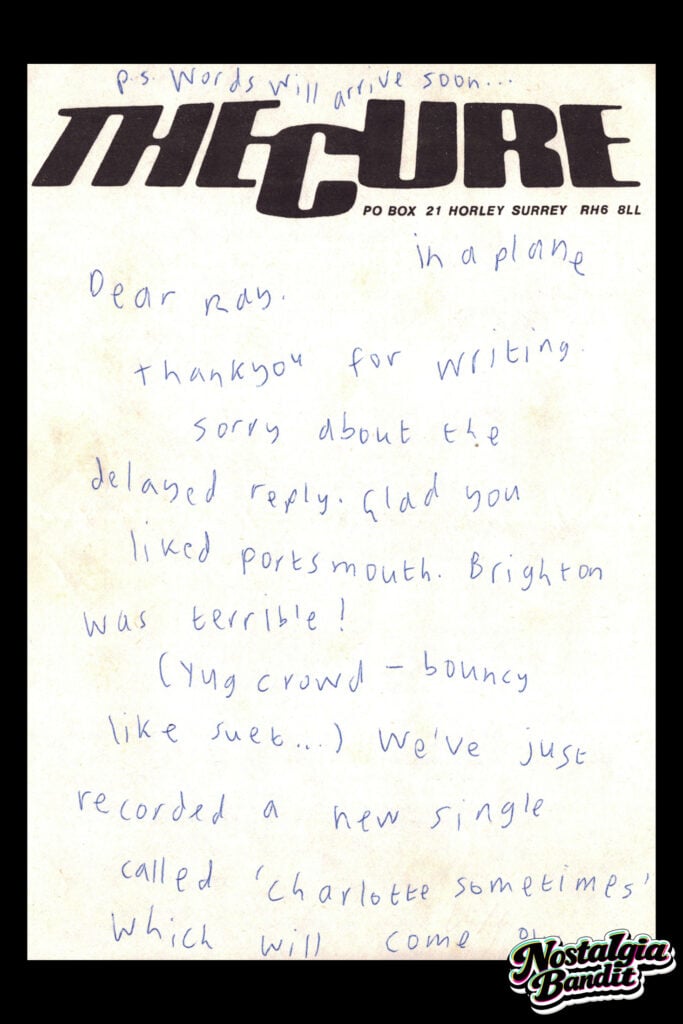 p.s. Words will arrive soon...
THE CURE
PO BOX 21 HORLEY SURREY RH6 8LL
in a plane
Dear Ray.
thankyou for writing.
sorry about the
delayed reply. Glad you
liked portsmouth. Brighton
was terrible!
(Yug crowd – bouncy
like suet...) We've just
recorded a new single
called 'Charlotte sometimes'
which will come
Nostalgia
Bandit